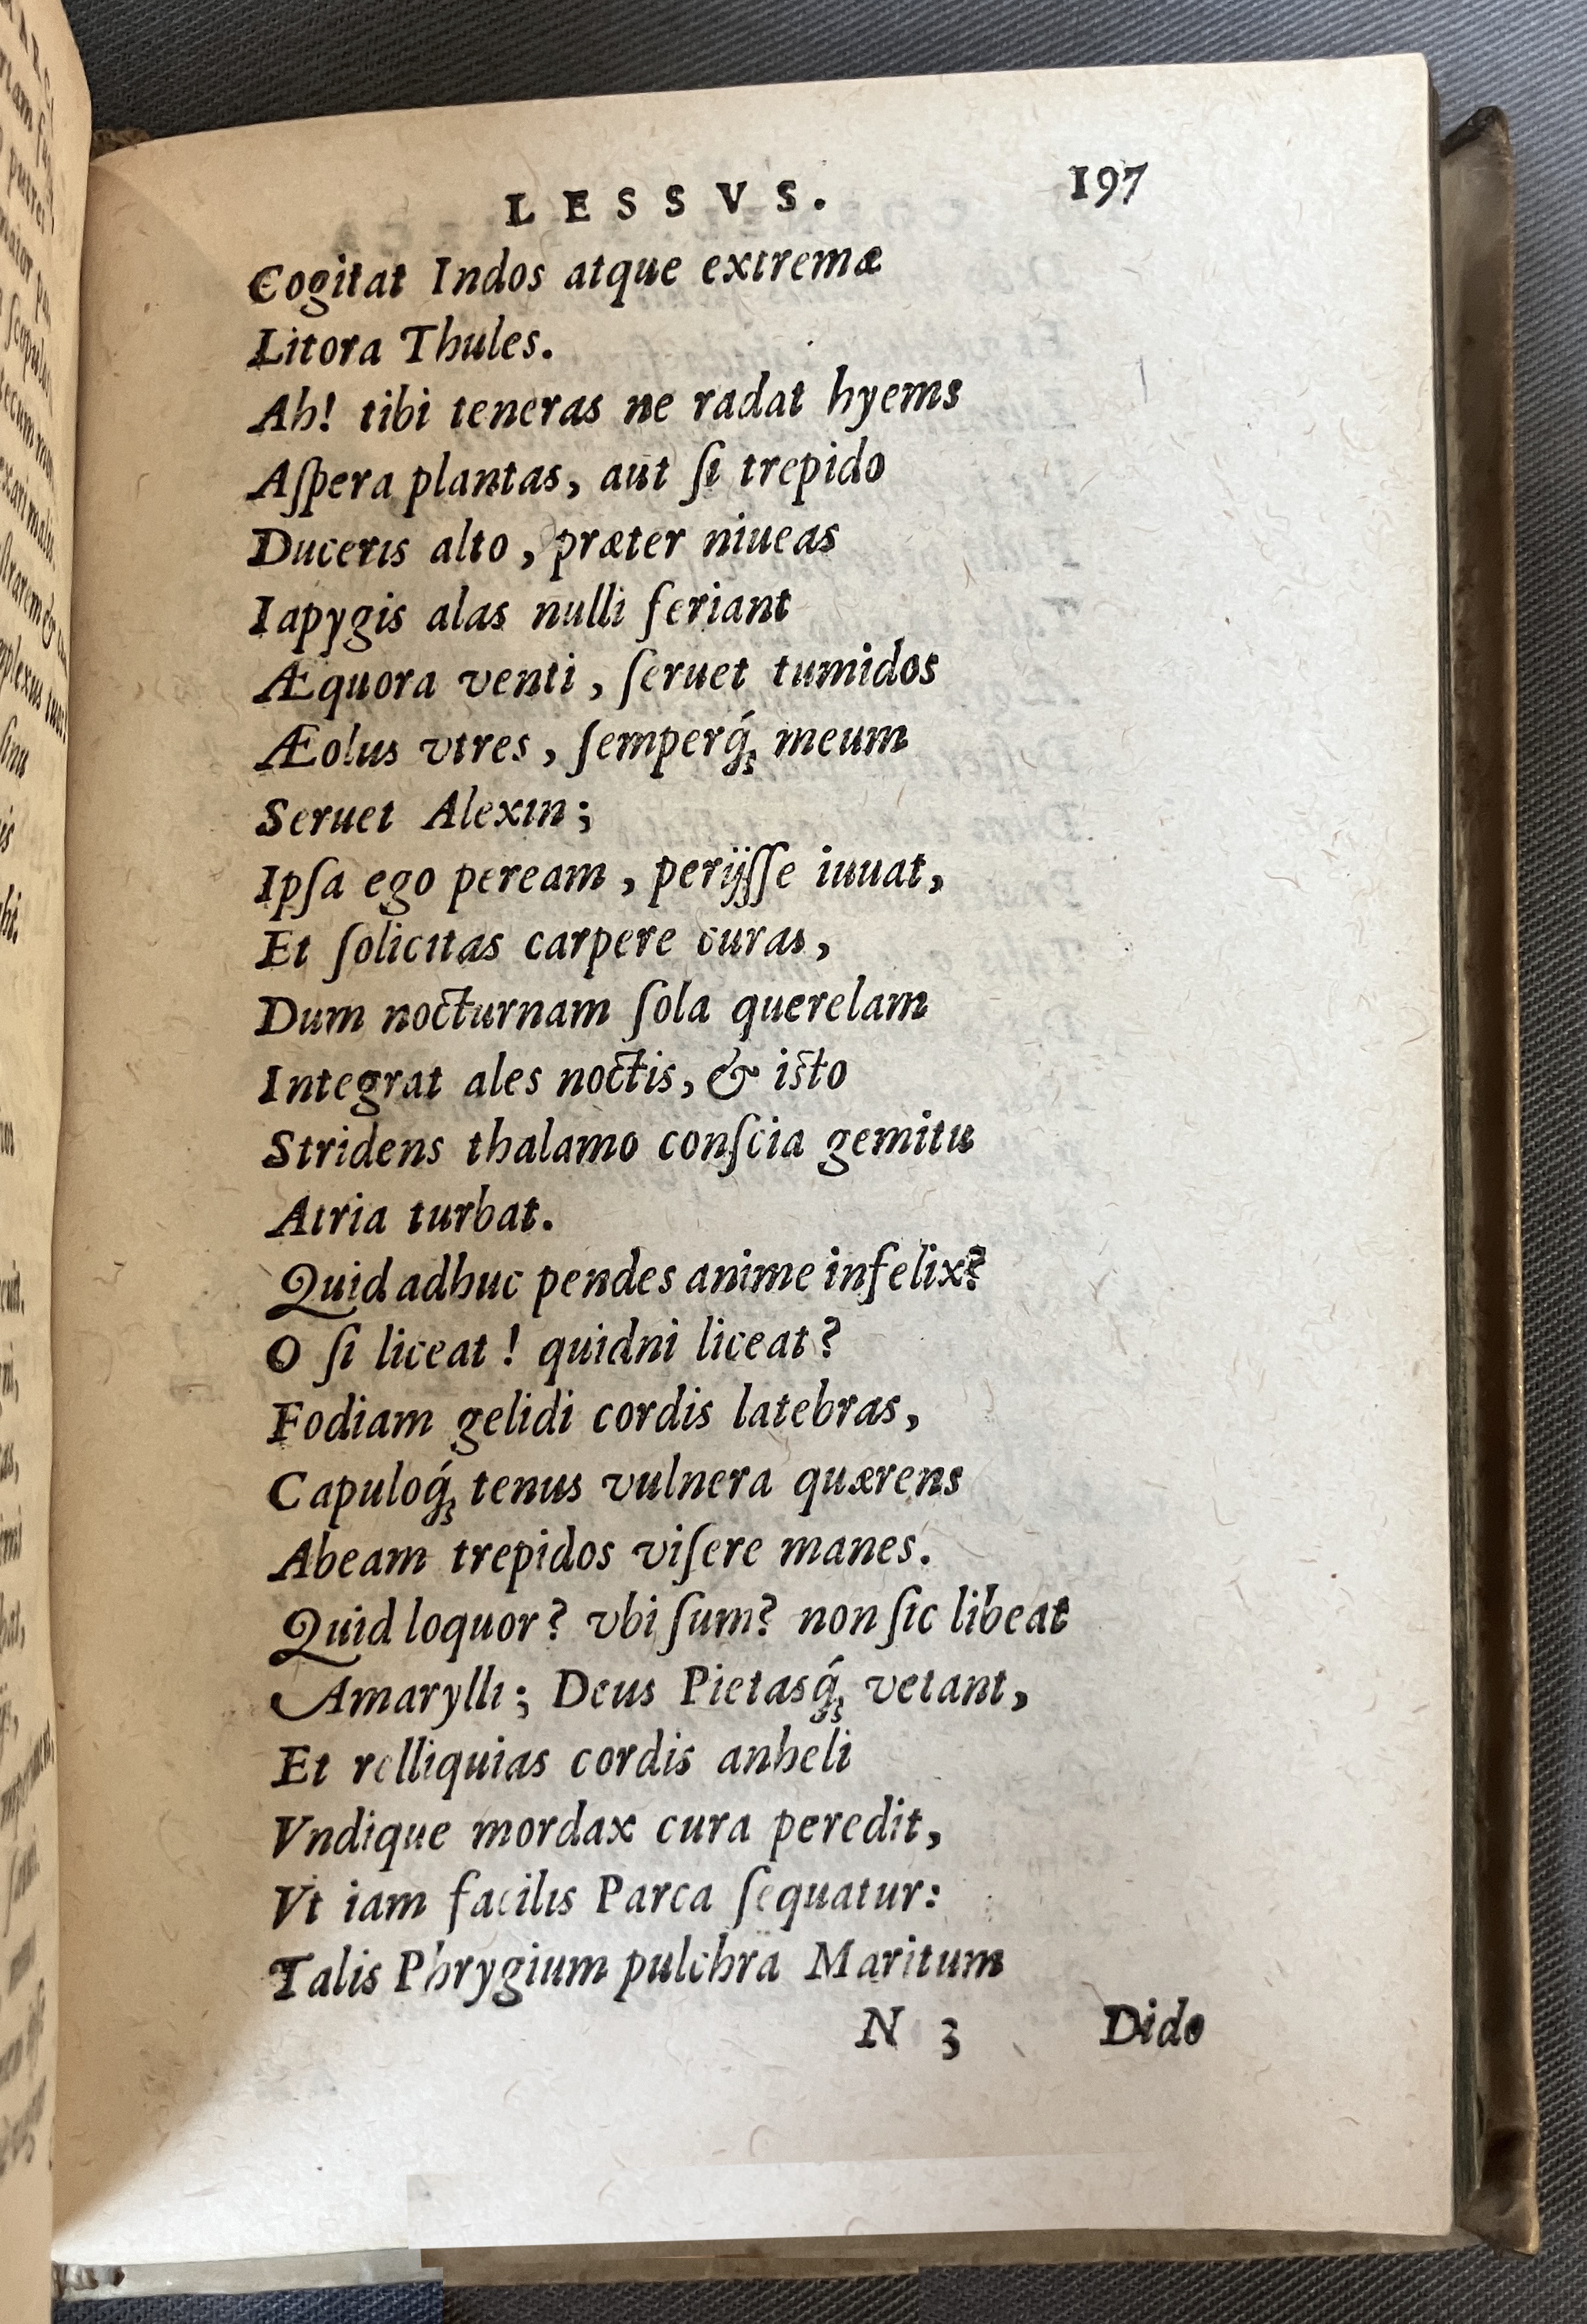 LESSVS. 197
Cogitat Indos atque extremæ
Litora Thules.
Ah! tibi teneras ne radat hyems
Aſpera plantas, aut ſi trepido
Duceris alto, præter niueas
Iapygis alas nulli feriant
Æquora venti, ſeruet tumidos
Æolus vtres, ſemperq́ꝫ meum
Seruet Alexin;
Ipſa ego peream, perijſſe iuuat,
Et ſolicitas carpere curas,
Dum nocturnam ſola querelam
Integrat ales noctis, & iſto
Stridens thalamo conſcia gemitu
Atria turbat.
Quid adhuc pendes anime infelix?
O ſi liceat! quidni liceat?
Fodiam gelidi cordis latebras,
Capuloq́ꝫ tenus vulnera quærens
Abeam trepidos viſere manes.
Quid loquor? vbi ſum? non ſic libeat
Amarylli; Deus Pietasq́ꝫ vetant,
Et relliquias cordis anheli
Vndique mordax cura peredit,
Vt iam facilis Parca ſequatur:
Talis Phrygium pulchra Maritum
N 3 Dido